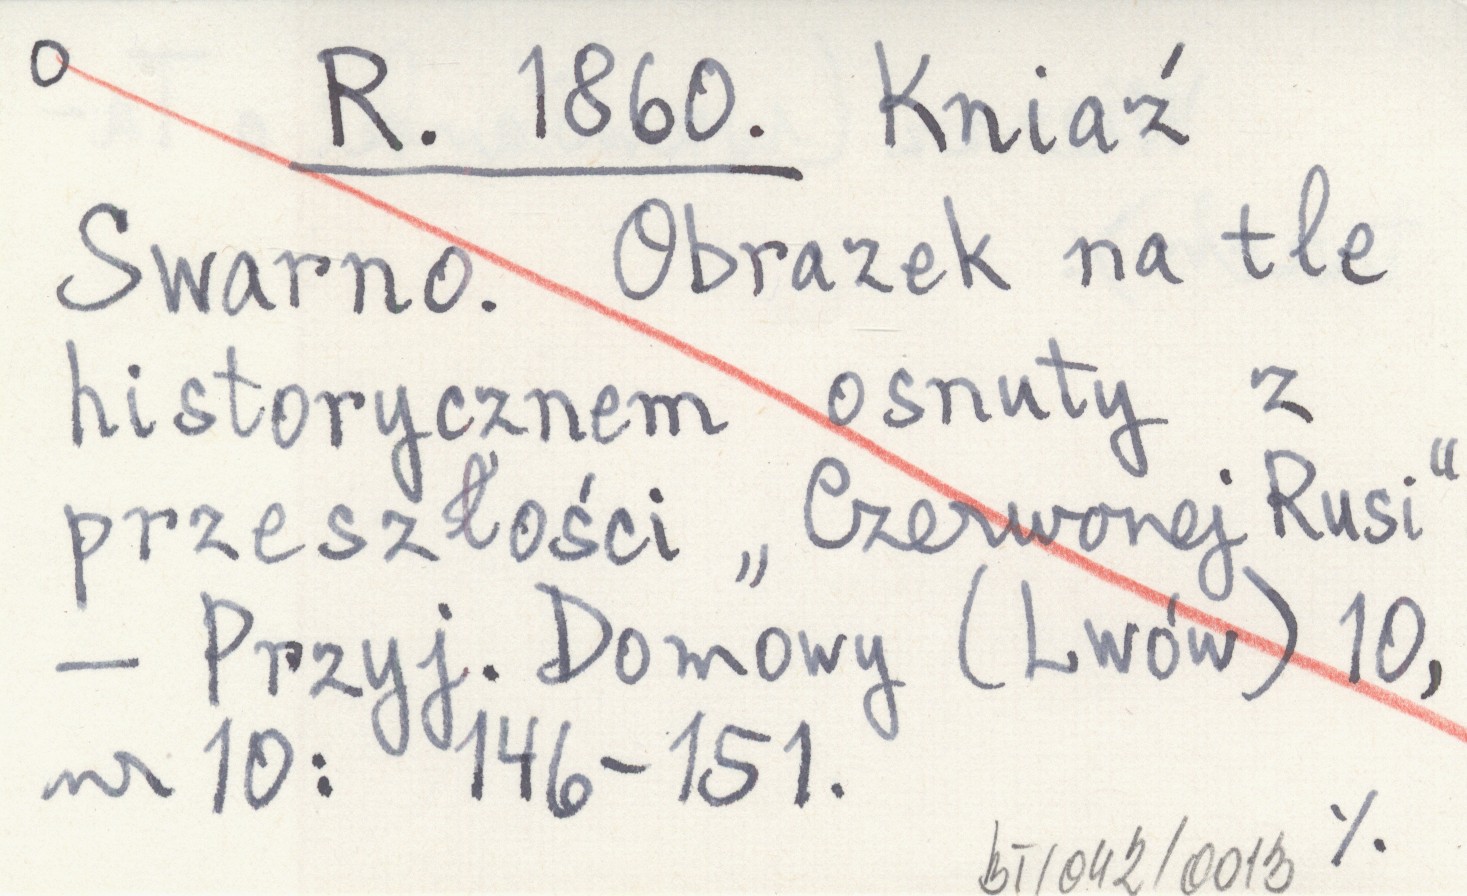 O R. 1860. Kniaź
Swarno. Obrazek na tle
historycznem osnuty z
przeszłości „Czerwonej Rusi“
— Przyj. Domowy (Lwów) 10,
nr 10: 146-151.
BI/042/0013 ⁒